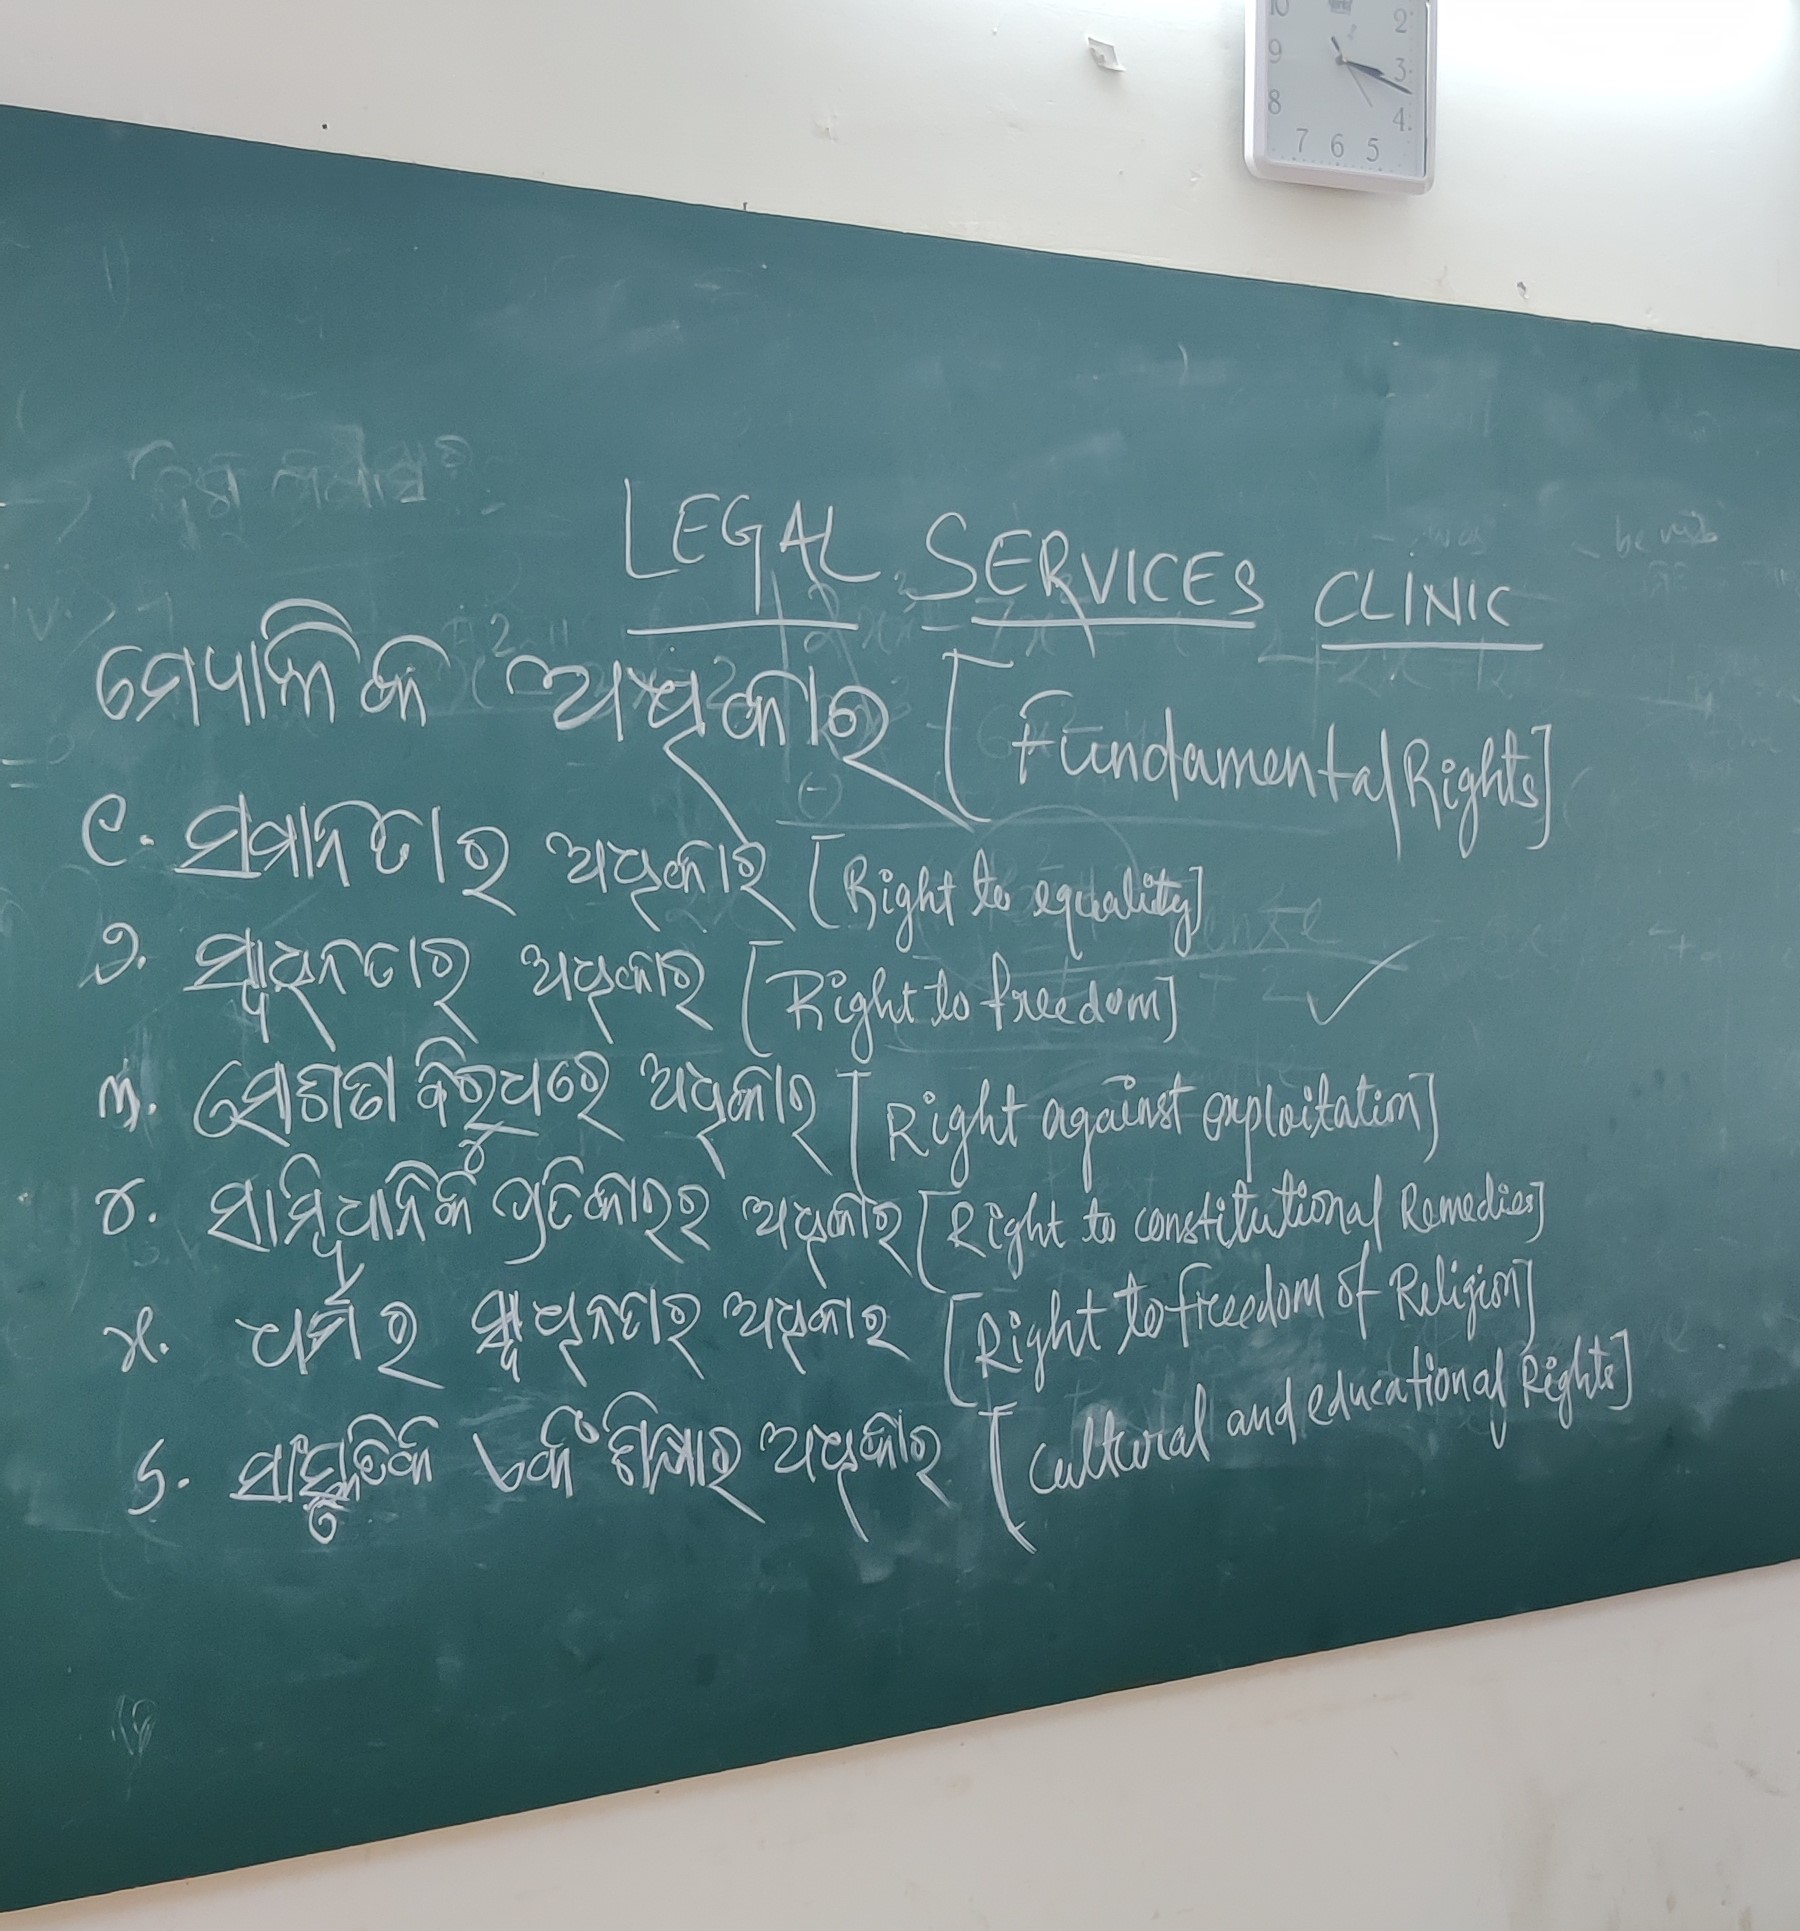 LEGAL SERVICES CLINIC
ମୌଳିକ ଅଧିକାର [Fundamental Rights]
୧. ସମାନତାର ଅଧିକାର [Right to equality]
୨. ସ୍ୱାଧିନତାର ଅଧିକାର [Right to freedom]
୩. ବିରୁଧରେ ଅଧିକାର [Right against exploitation]
୪. ସାମ୍ବିଧାନିକ ପ୍ରତିକାରର ଅଧିକାର [Right to constitutional Remedies]
୫. ଧର୍ମର ସ୍ୱାଧିନତାର ଅଧିକାର [Right to freedom of Religion]
୬. ଶିକ୍ଷାର ଅଧିକାର [Cultural and educational Rights]
10 2 9 3 8 4 7 6 5